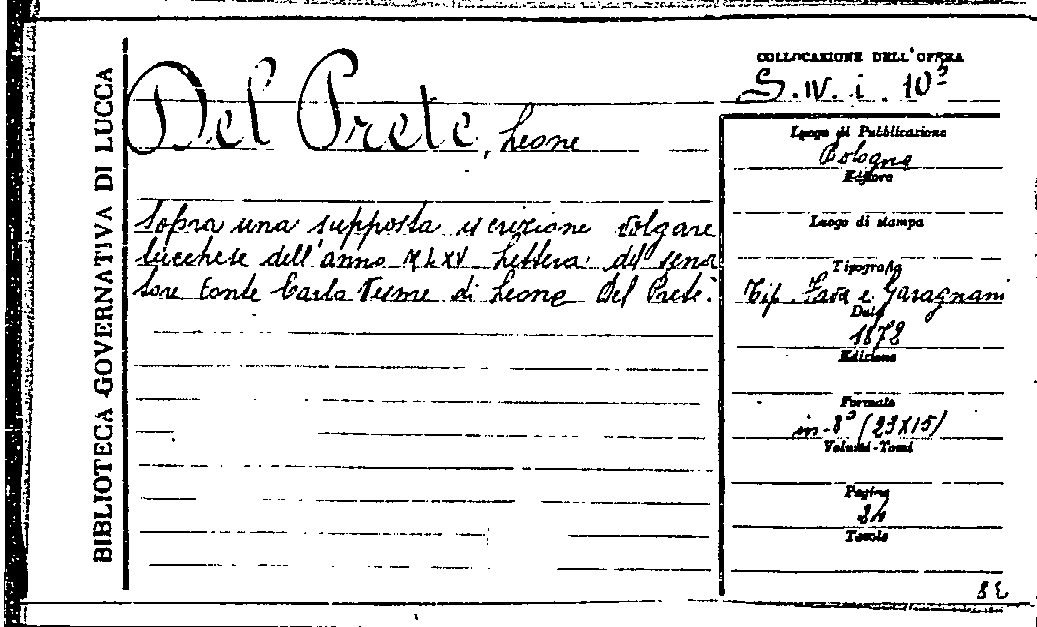 BIBLIOTECA GOVERNATIVA DI LUCCA
Del Prete, Leone
Sopra una supposta iscrizione volgare
lucchese dell'anno MLXV Lettera del sena
tore Conte Carlo Vesme di Leone Del Prete.
COLLOCAZIONE DELL'OPERA
S. IV. i. 10
Luogo di Pubblicazione
Bologna
Editore
Luogo di stampa
Tipografia
Tip. Fava e Garagnani
Data
1872
Edizione
Formato
in-8° (23X15)
Volumi-Tomi
Pagine
Tavole